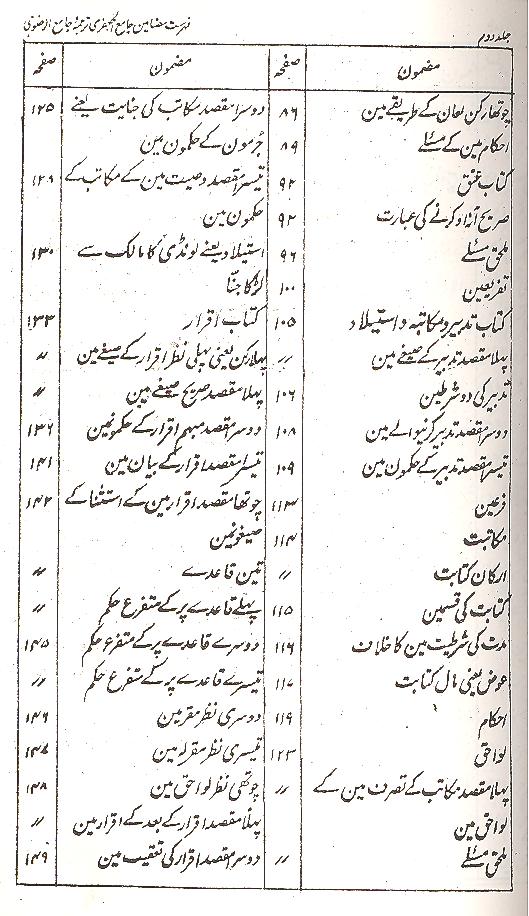 جلد دوم
فہرست مضامین جامع الجعفری ترجمۂ جامع الرضوی
مضمون صفحہ
چوتھا رکن لعان کے طریقے مین ۸۶
احکام مین کے مسئلے ۸۹
کتاب عتق ۹۲
صریح آزاد کرنے کی عبارت ۹۲
ملحق مسئلے ۹۶
تفریعین ۱۰۰
کتاب تدبیر و مکاتبہ و استیلاد ۱۰۵
پہلا مقصد تدبیر کے صیغے مین 〃
تدبیر کی دو شرطین ۱۰۶
دوسرا مقصد تدبیر کرنیوالے مین ۱۰۸
تیسرا مقصد تدبیر کے حکمون مین ۱۰۹
فرعین ۱۱۳
مکاتبت ۱۱۴
ارکان کتابت 〃
کتابت کی قسمین ۱۱۵
مدت کی شرطیت مین کا خلاف ۱۱۶
عوض یعنی مال کتابت ۱۱۷
احکام ۱۱۹
لواحق ۱۲۳
پہلا مقصد مکاتب کے تصرف مین کے 〃
لواحق مین
ملحق مسئلے 〃
مضمون صفحہ
دوسرا مقصد مکاتب کی جنایت یعنے ۱۲۵
جُرمون کے حکمون مین
تیسرا مقصد وصیت مین کے مکاتب کے ۱۲۸
حکمون مین
استیلاد یعنے لونڈی کا مالک سے ۱۳۰
لڑکا جننا
کتاب اقرار ۱۳۳
پہلا رکن یعنی پہلی نظر اقرار کے صیغے مین 〃
پہلا مقصد صریح صیغے مین 〃
دوسرا مقصد مبہم اقرار کے حکمونمین ۱۳۶
تیسرا مقصد اقرار کے بیان مین ۱۴۱
چوتھا مقصد اقرار مین کے استثنا کے ۱۴۲
صیغونمین
تین قاعدے 〃
پہلے قاعدے پر کے متفرع حکم 〃
دوسرے قاعدے پر کے متفرع حکم ۱۴۵
تیسرے قاعدے پر کے متفرع حکم 〃
دوسری نظر مقر مین ۱۴۶
تیسری نظر مقرلہ مین ۱۴۷
چوتھی نظر لواحق مین ۱۴۸
پہلا مقصد اقرار کے بعد کے اقرار مین 〃
دوسرا مقصد اقرار کی تعقیب مین ۱۴۹